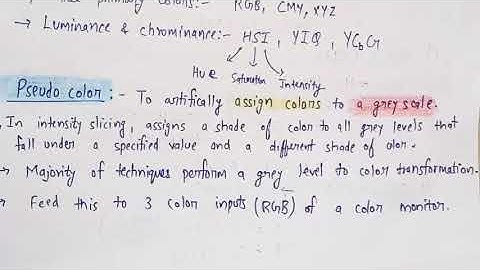 primary colors:- RGB, CMY, XYZ
→ Luminance & chrominance:- HSI, YIQ, YCbCr
Hue Saturation Intensity
Pseudo color:- To artifically assign colors to a grey scale.
In intensity slicing, assigns a shade of color to all grey levels that
fall under a specified value and a different shade of olor.
→ Majority of techniques perform a grey level to color transformation.
→ Feed this to 3 color inputs (RGB) of a color monitor.